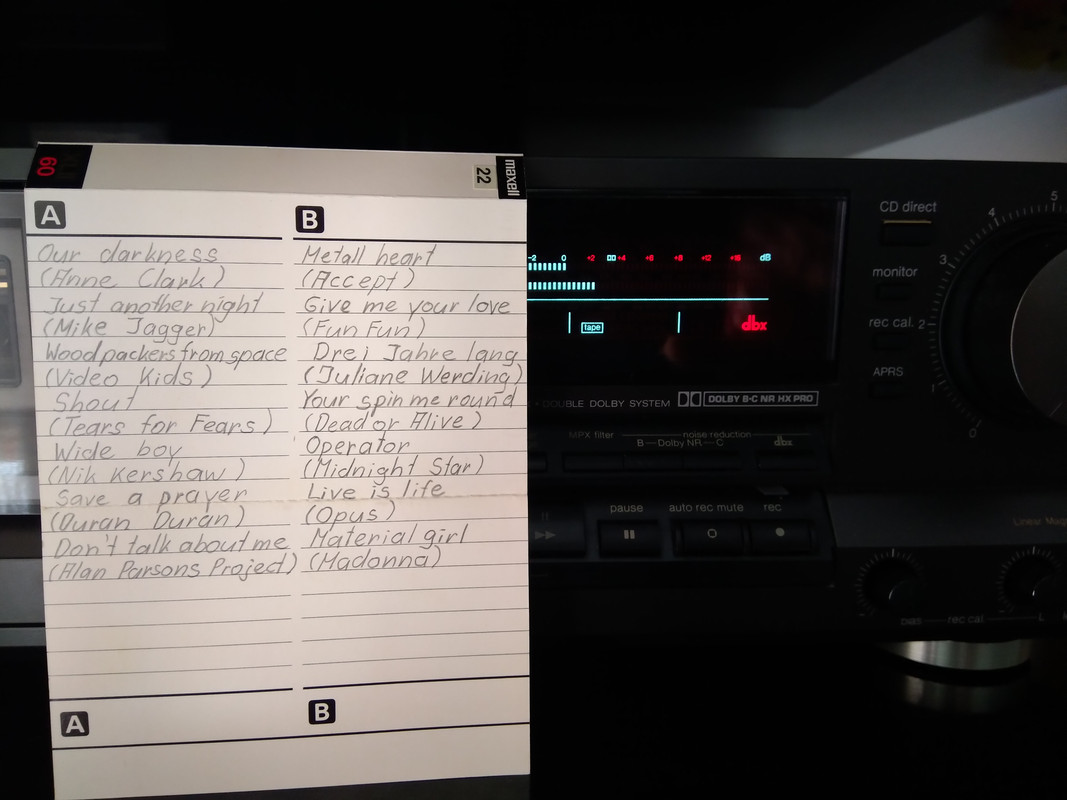 60
22
maxell
A
Our darkness
(Anne Clark)
Just another night
(Mike Jagger)
Woodpackers from space
(Video Kids)
Shout
(Tears for Fears)
Wide boy
(Nik Kershaw)
Save a prayer
(Duran Duran)
Don't talk about me
(Alan Parsons Project)
B
Metall heart
(Accept)
Give me your love
(Fun Fun)
Drei Jahre lang
(Juliane Werding)
Your spin me round
(Dead or Alive)
Operator
(Midnight Star)
Live is life
(Opus)
Material girl
(Madonna)
A
B
-2 0 +2 +4 +6 +8 +12 +18 dB
tape
dbx
DOUBLE DOLBY SYSTEM DOLBY B-C NR HX PRO
MPX filter
noise reduction
B—Dolby NR—C
dbx
pause
auto rec mute
rec
CD direct
monitor
rec cal.
APRS
5
4
3
2
1
0
bias
rec cal.
L